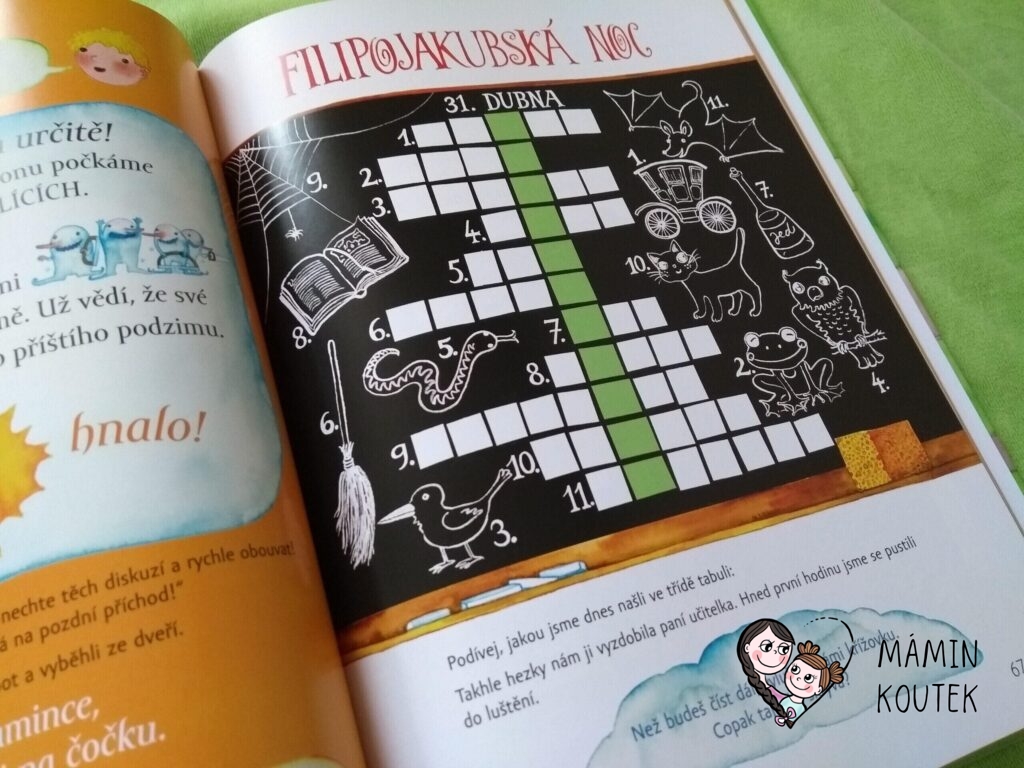 určitě!
onu počkáme
LÍCÍCH.
ni
ně. Už vědí, že své
příštího podzimu.
hnalo!
nechte těch diskuzí a rychle obouvat!
á na pozdní příchod!“
ot a vyběhli ze dveří.
mince,
na čočku.
FILIPOJAKUBSKÁ NOC
31. DUBNA
1.
2.
3.
4.
5.
6.
7.
8.
9.
10.
11.
9.
8.
5.
6.
3.
11.
1.
7.
jed
10.
2.
4.
Podívej, jakou jsme dnes našli ve třídě tabuli:
Takhle hezky nám ji vyzdobila paní učitelka. Hned první hodinu jsme se pustili
do luštění.
Než budeš číst dál křížovku.
Copak
67
MÁMIN
KOUTEK